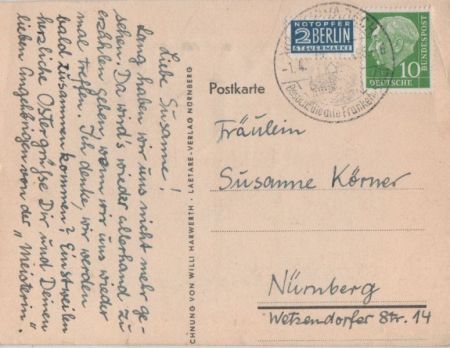 Liebe Susanne!
Lang haben wir uns nicht mehr ge-
sehen. Da wird's wieder allerhand zu
erzählen geben, wann wir uns wieder
mal treffen. Ich denke, wir werden
bald zusammenkommen? Einstweilen
herzliche Ostergrüße Dir und Deinen
lieben Angehörigen von der „Meisterin".
CHNUNG VON WILLI HARWERTH · LAETARE-VERLAG NÜRNBERG
NOTOPFER
2 BERLIN
STEUERMARKE
-1.4.
10
DEUTSCHE
BUNDESPOST
Postkarte
Fräulein
Susanne Körner
Nürnberg
Wetzendorfer Str. 14